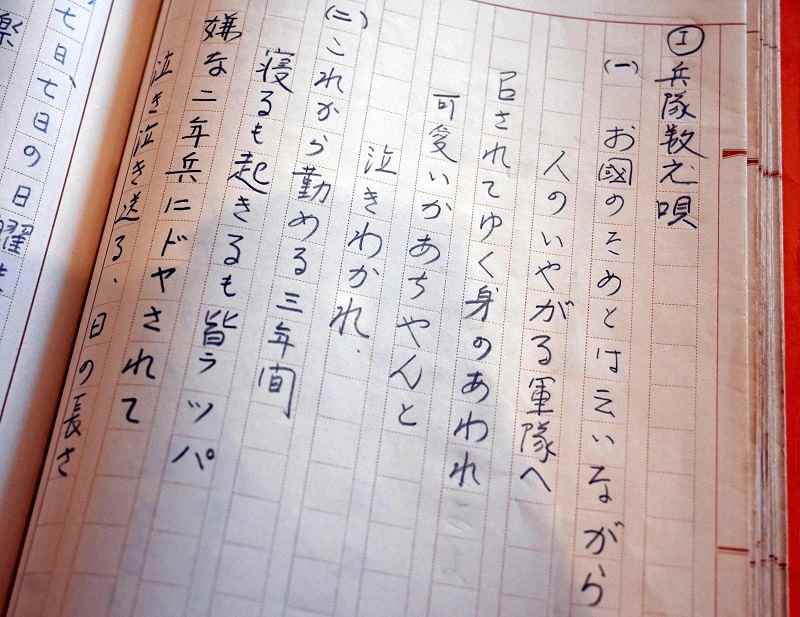 Ⅰ 兵隊数え唄
(一) お國のためとは云いながら
人のいやがる軍隊へ
召されてゆく身のあわれ
可愛いかあちやんと
泣きわかれ.
(二) これから勤める三年间
寝るも起きるも皆ラツパ
嫌な二年兵にドヤされて
泣き泣き送る、日の長さ
七日、七日の日曜
楽